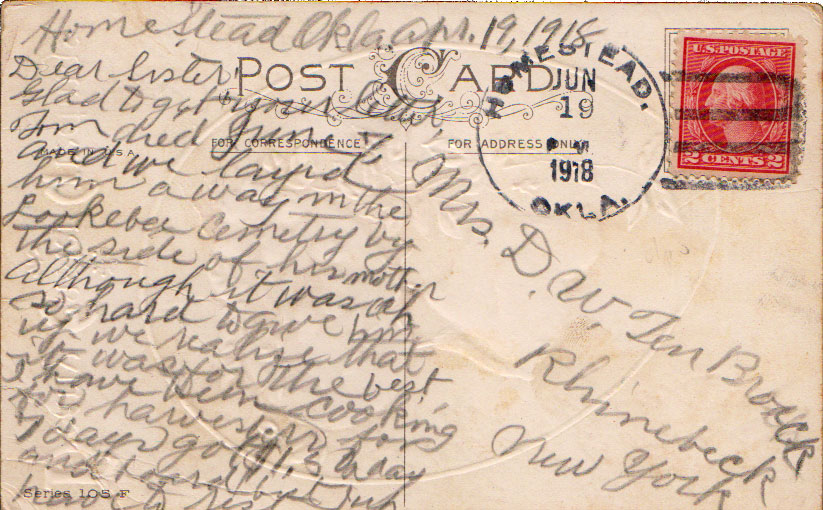 Homestead Okla Apr. 19, 1918
Dear Sister,
Glad to get your card
Tom died June 7
and we layed
him away in the
Lookeba Cemetry by
the side of his mother
although it was oh
so hard to give him
up we realize that
it was for the best
I have been cooking
for harvesters for
days got $1.50 a day
and board but I
have to rest
POST CARD
MADE IN U.S.A.
FOR CORRESPONDENCE
FOR ADDRESS ONLY
Series 105 F
HOMESTEAD.
JUN
19
P M
1918
OKLA.
U.S. POSTAGE
2 CENTS 2
Mrs. D. W. Ten Broeck
Rhinebeck
New York